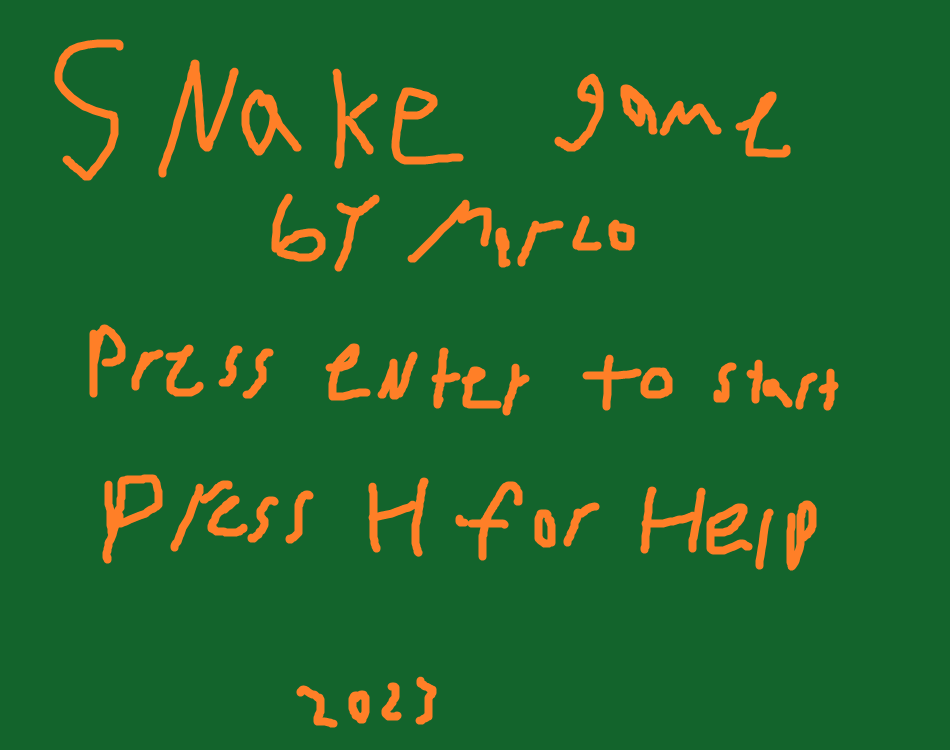 SNake game
bY Mirco
Press enter to start
Press H for Help
2023